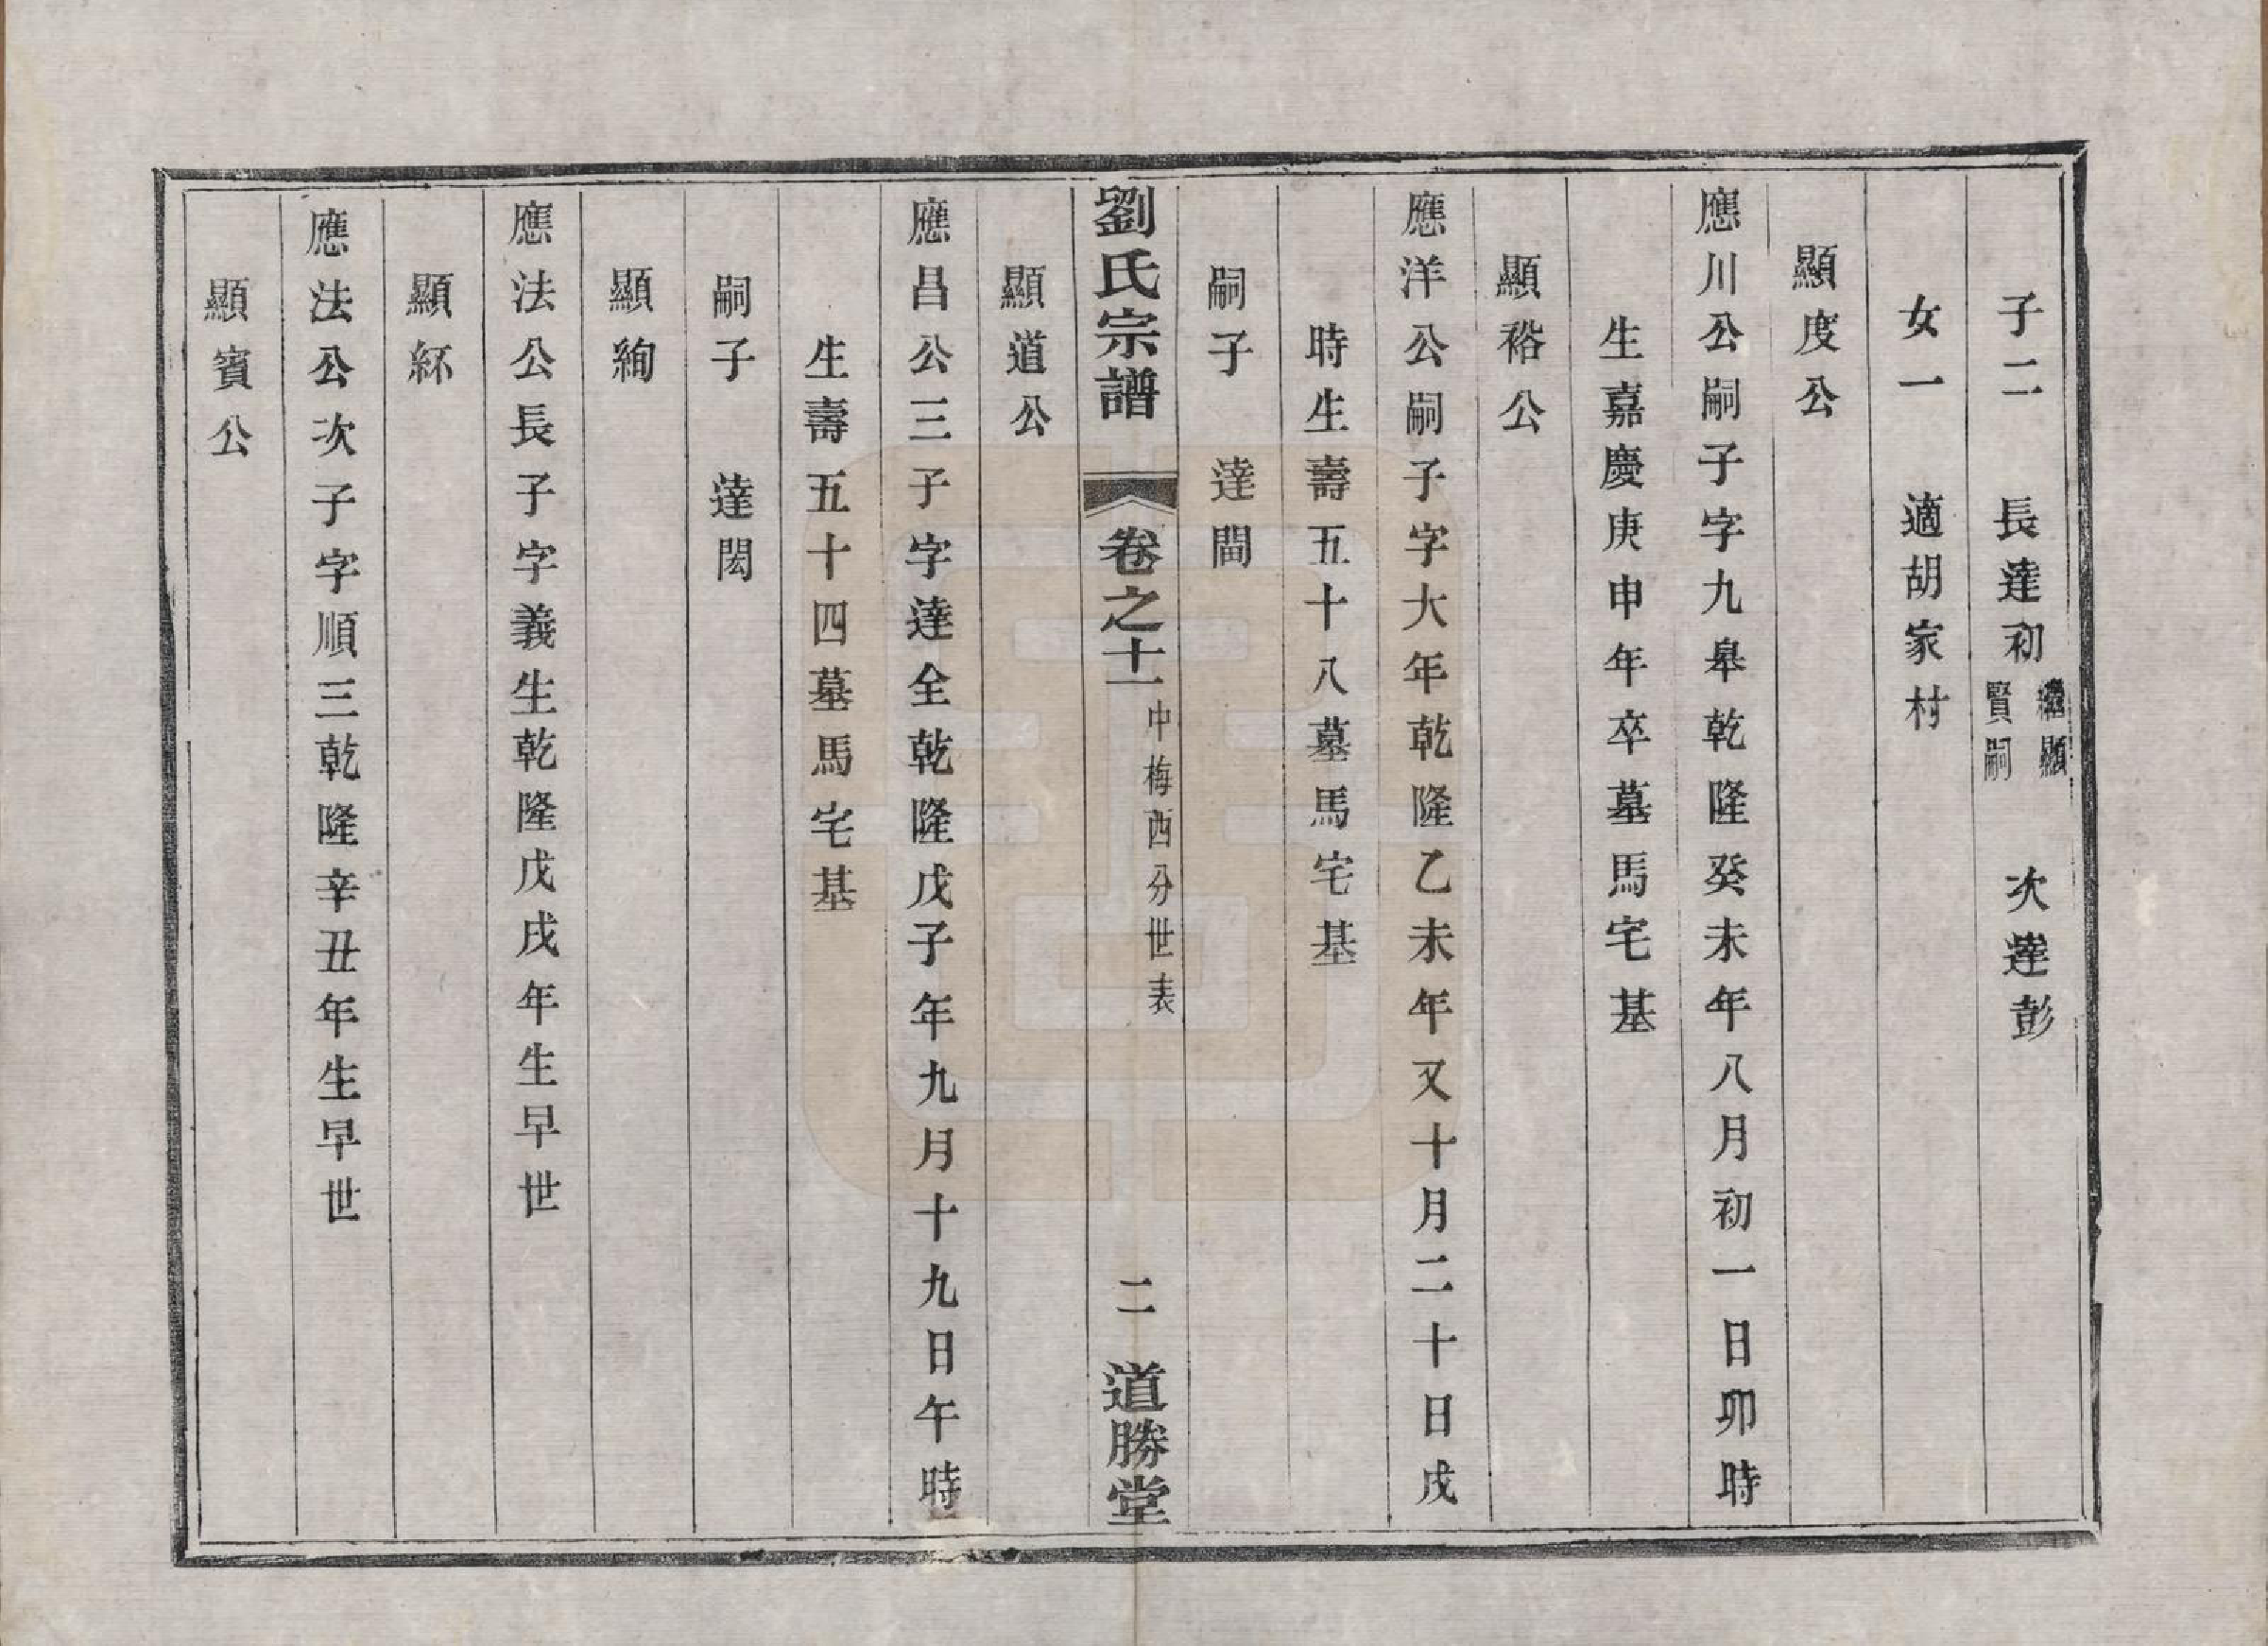 子二　長達初繼顯賢嗣　次達彭
女一　適胡家村
顯度公
應川公嗣子字九皋乾隆癸未年八月初一日卯時
生嘉慶庚申年卒墓馬宅基
顯裕公
應洋公嗣子字大年乾隆乙未年又十月二十日戌
時生壽五十八墓馬宅基
嗣子　達閶
劉氏宗譜　卷之十一　中梅西分世表　二　道勝堂
顯道公
應昌公三子字達全乾隆戊子年九月十九日午時
生壽五十四墓馬宅基
嗣子　達閎
顯絢
應法公長子字義生乾隆戊戌年生早世
顯紑
應法公次子字順三乾隆辛丑年生早世
顯賓公